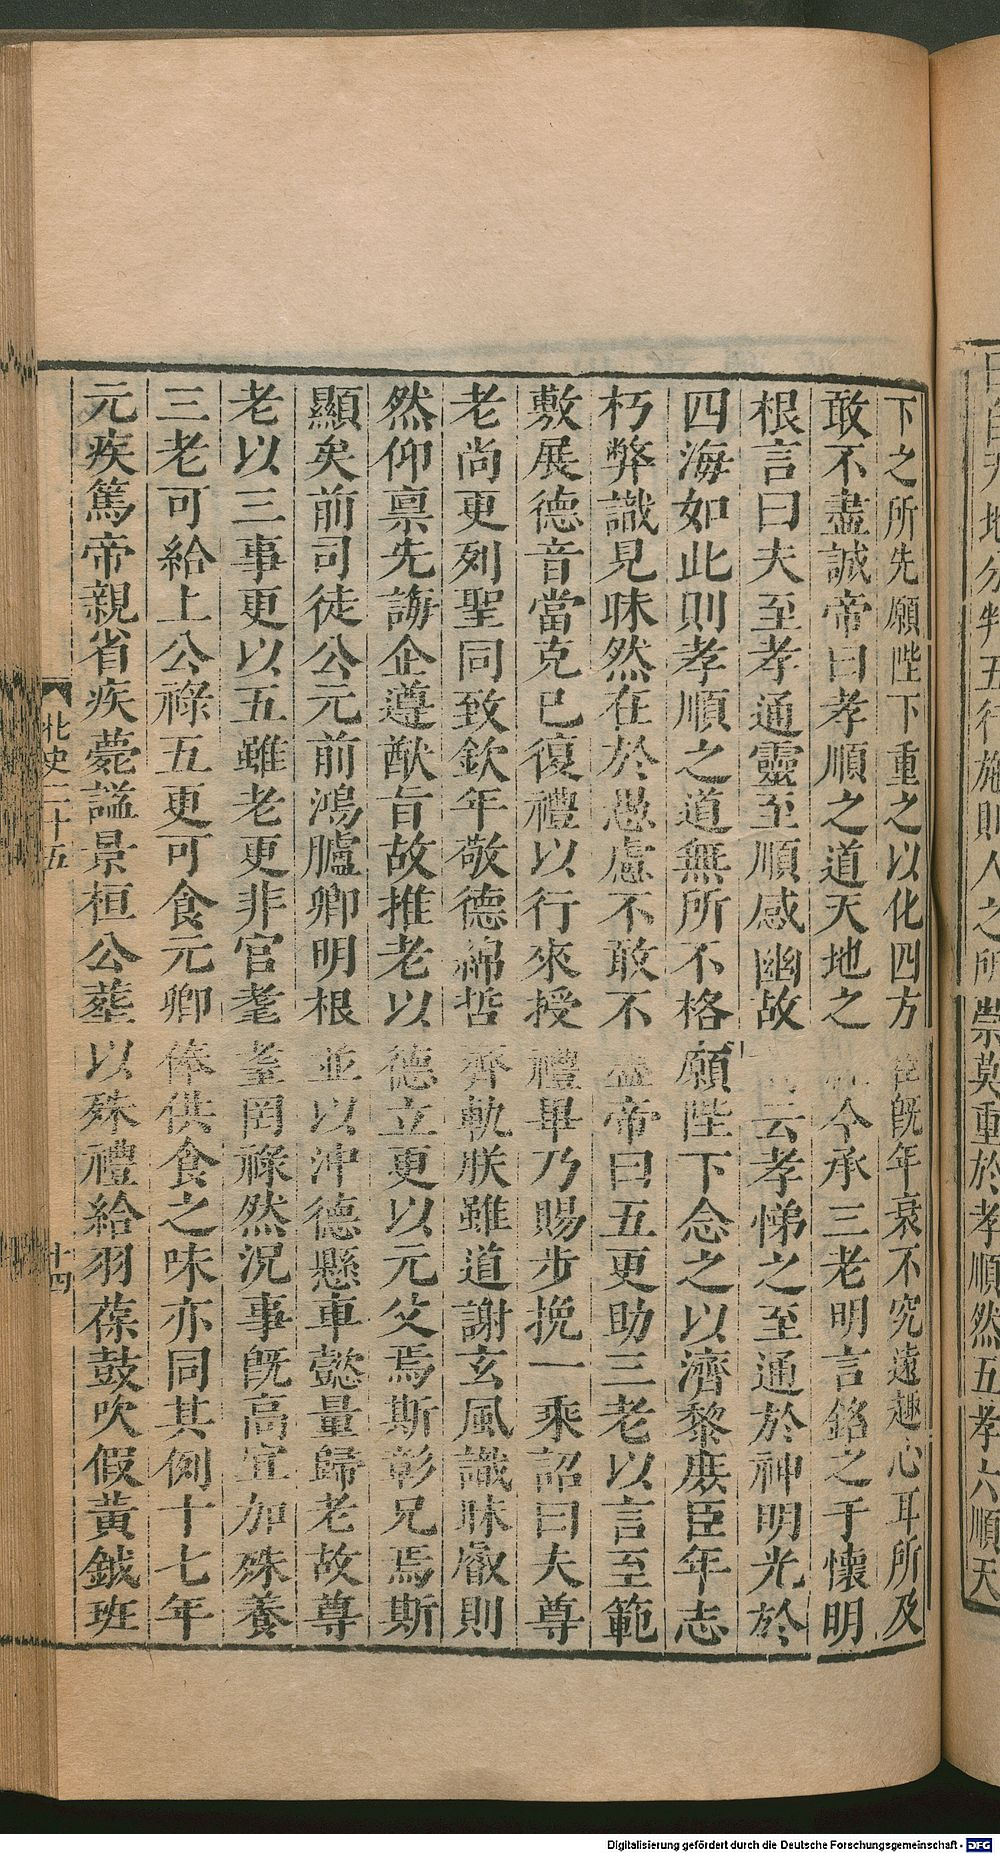 下之所先願陛下重之以化四方臣既年衰不究遠趣心耳所及
敢不盡誠帝曰孝順之道天地之今承三老明言銘之于懷明
根言曰夫至孝通靈至順感幽故云孝悌之至通於神明光於
四海如此則孝順之道無所不格願陛下念之以濟黎庶臣年志
朽弊識見昧然在於愚慮不敢不盡帝曰五更助三老以言至範
敷展德音當克已復禮以行來授禮畢乃賜步挽一乘詔曰夫尊
老尚更列聖同致欽年敬德綿哲齊軌朕雖道謝玄風識昧叡則
然仰稟先誨企遵猷旨故推老以德立更以元父焉斯彰兄焉斯
顯矣前司徒公元前鴻臚卿明根並以沖德懸車懿量歸老故尊
老以三事更以五雖老更非官耄耋罔祿然況事旣高宜加殊養
三老可給上公祿五更可食元卿俸供食之味亦同其例十七年
元疾篤帝親省疾薨謚景桓公葬以殊禮給羽葆鼓吹假黃鉞班
北史二十五
十四
地分判五行施則人之所崇莫重於孝順然五孝六順天
Digitalisierung gefördert durch die Deutsche Forschungsgemeinschaft - DFG